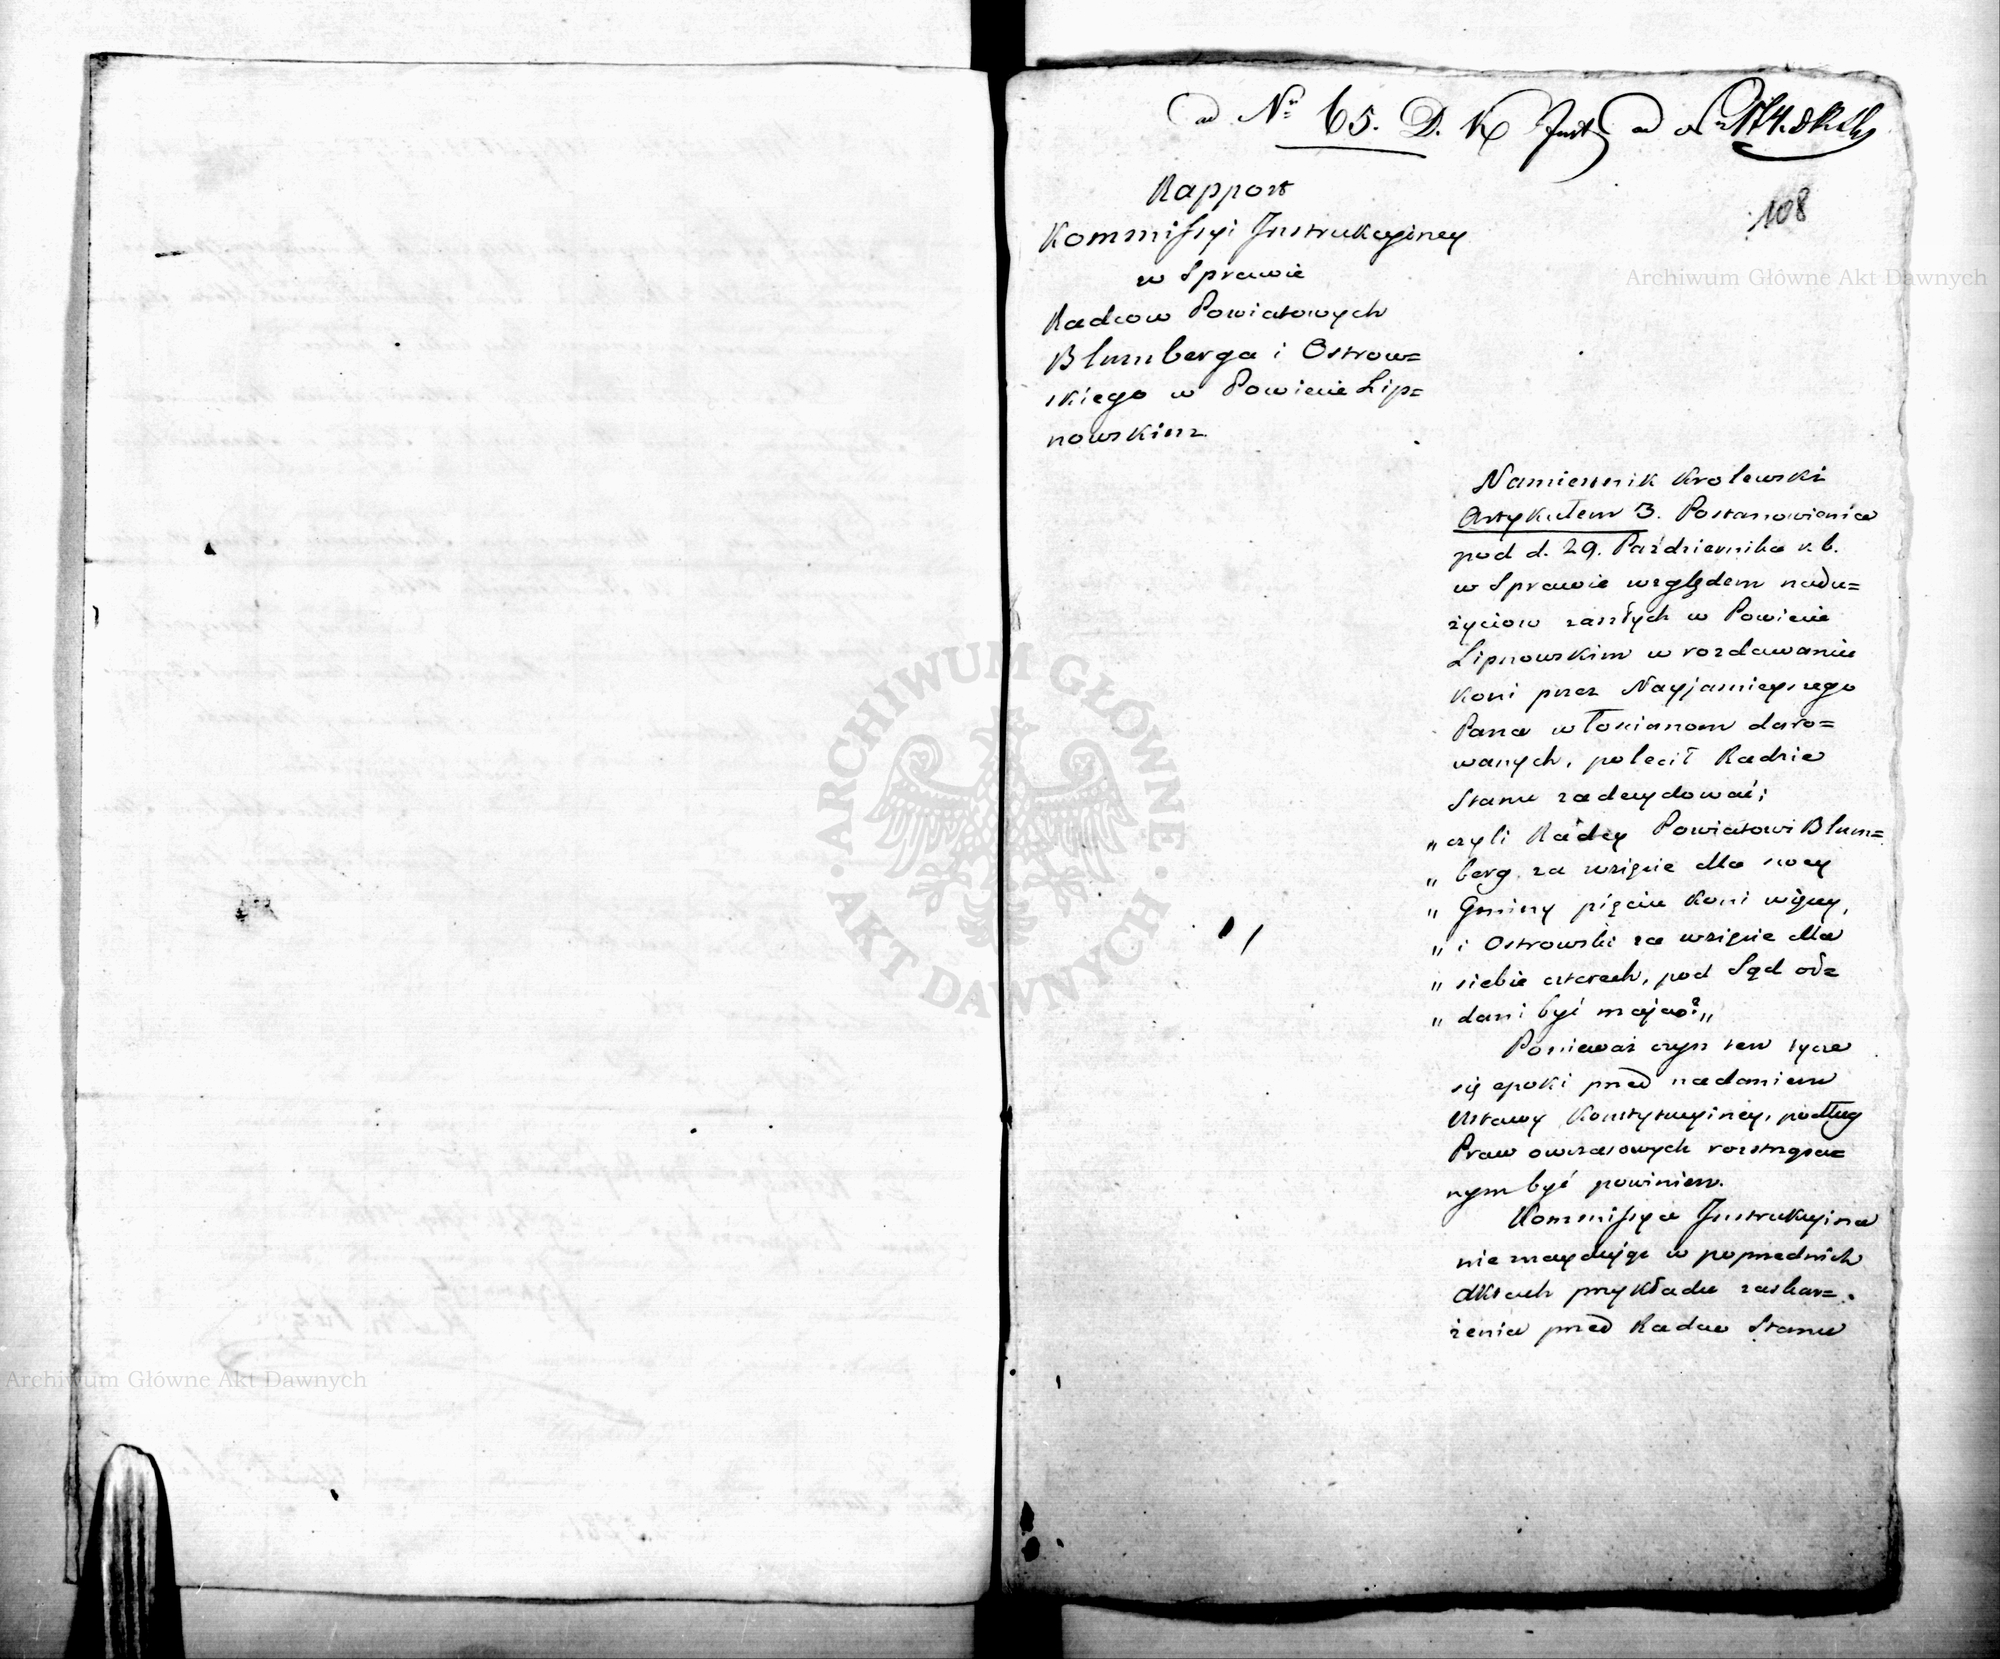 ad Nr 65. D. K Inst ad Nr 174. D.R.St.
108
Rapport
Kommissyi Instrukcyiney
w Sprawie
Radcow Powiatowych
Blumberga i Ostrow=
skiego w Powiecie Lip=
nowskim
Namiestnik Krolewski
Artykułem 3. Postanowienia
pod d. 29. Października r. b.
w Sprawie względem nadu=
życiow zaszłych w Powiecie
Lipnowskim w rozdawaniu
Koni przez Nayjaśnieyszego
Pana włościanom daro=
wanych, polecił Radzie
Stanu zadecydować;
„czyli Radcy Powiatowi Blum=
„berg za wzięcie dla swey
„Gminy pięciu Koni więcey,
„i Ostrowski za wzięcie dla
„siebie czterech, pod Sąd od=
„dani być mają?„
Ponieważ czyn ten tycze
się epoki przed nadaniem
Ustawy Konstytucyiney, podług
Praw owczasowych rozstrzyga=
nym być powinien.
Kommissya Instrukcyina
nie znayduiąc w poprzednich
Aktach przykładu zaskar=
żenia przed Radą Stanu
ARCHIWUM GŁÓWNE
AKT DAWNYCH
Archiwum Główne Akt Dawnych
Archiwum Główne Akt Dawnych